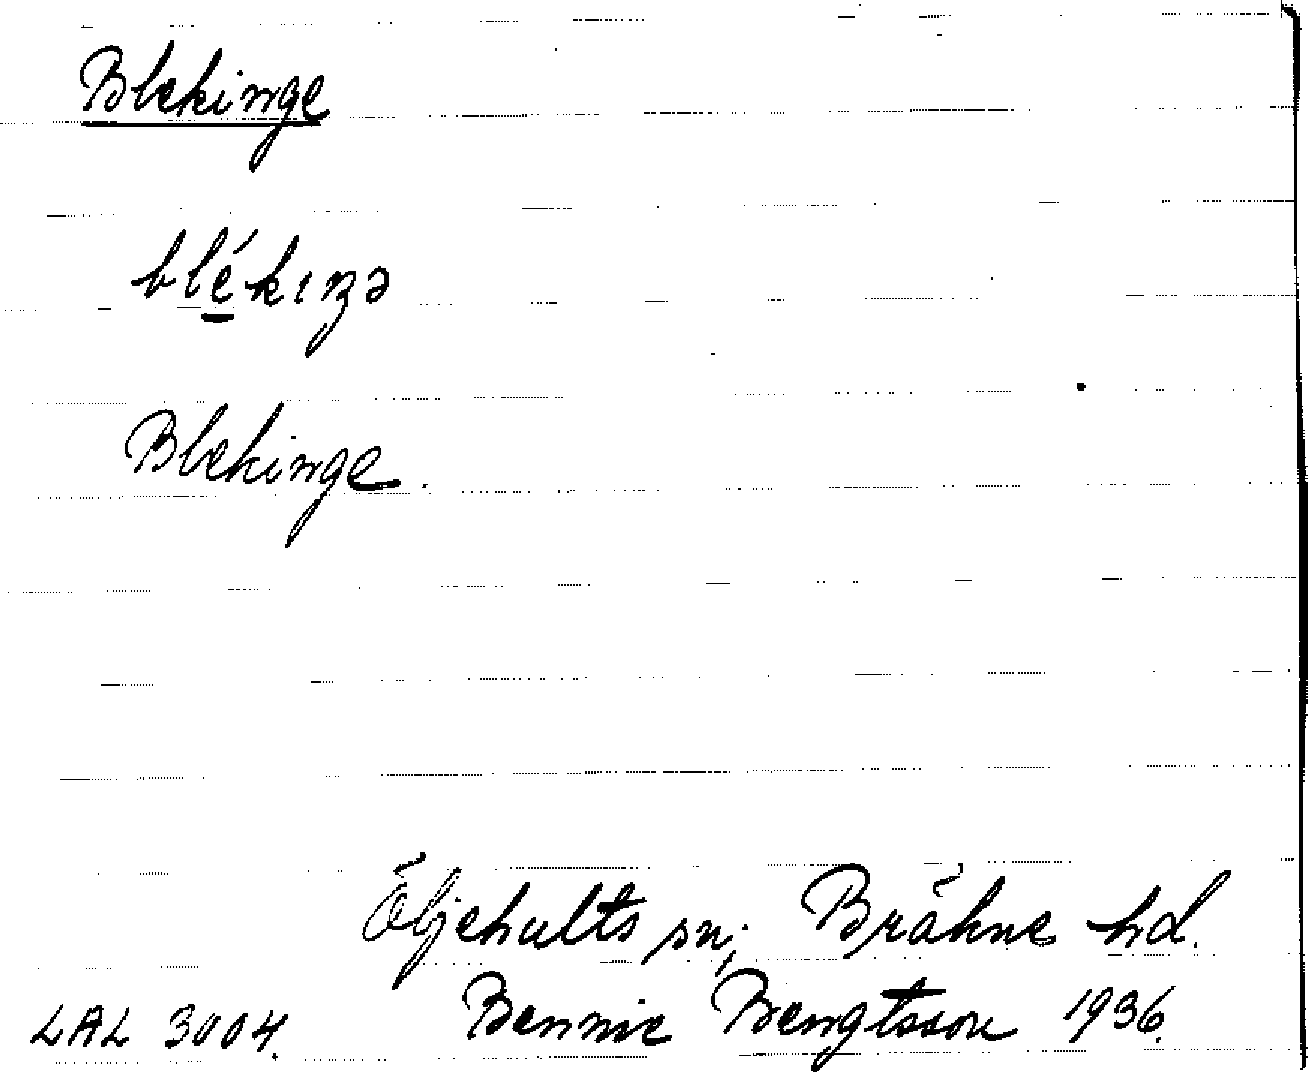 Blekinge
blékıŋə
Blekinge.
Öljehults sn; Bräkne hd.
LAL 3004. Bennie Bengtsson 1936.